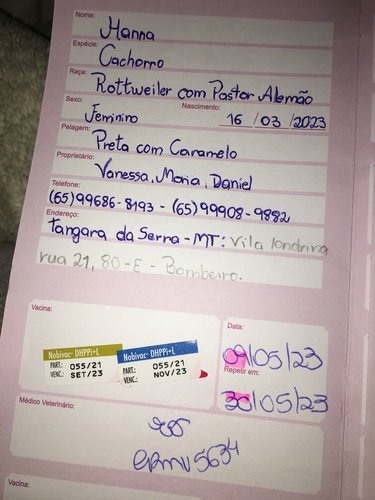 Nome: Hanna
Espécie: Cachorro
Raça: Rottweiler com Pastor Alemão
Sexo: Feminino Nascimento: 16 / 03 / 2023
Pelagem: Preta com Caramelo
Proprietário: Vanessa, Maria, Daniel
Telefone: (65)99686-8193 - (65)99908-9882
Endereço: Tangara da Serra - MT: Vila londrina
rua 21, 80-E - Bombeiro.
Vacina:
Nobivac DHPPi+L
PART.: 055/21
VENC: SET/23
Nobivac DHPPi+L
PART.: 055/21
VENC: NOV/23
Data:
09/05/23
Repetir em:
30/05/23
Médico Veterinário:
CRMV 5634
Vacina: